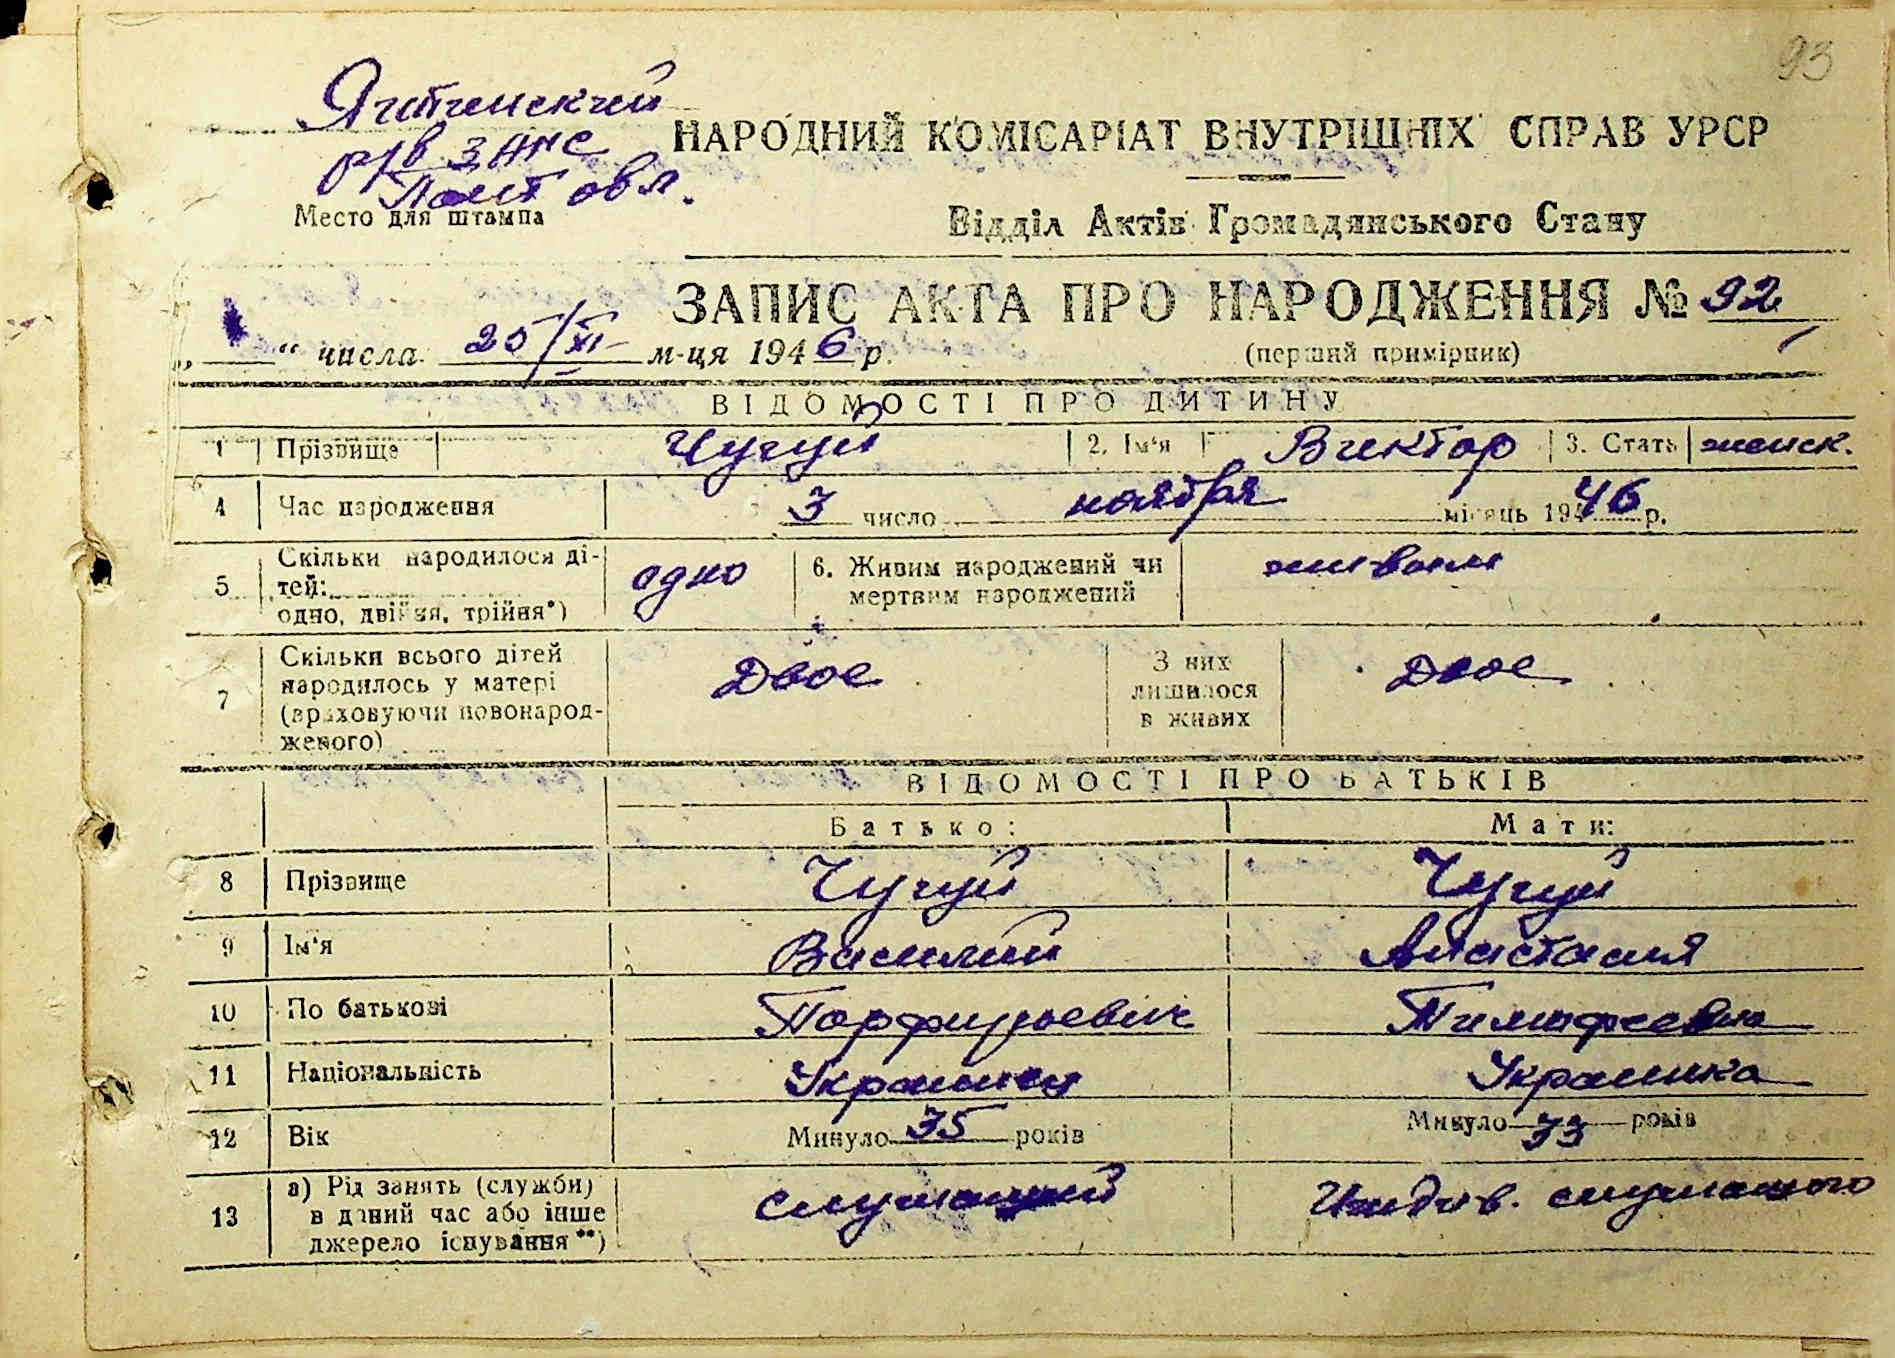 93
Яготинский
р/в ЗАГС
Полт обл.
Место для штампа
НАРОДНИЙ КОМІСАРІАТ ВНУТРІШНІХ СПРАВ УРСР
Відділ Актів Громадянського Стану
ЗАПИС АКТА ПРО НАРОДЖЕННЯ № 92
„ “ числа 25/XI м-ця 1946 р. (перший примірник)
ВІДОМОСТІ ПРО ДИТИНУ
1 Прізвище Чугуй 2. Ім‘я Виктор 3. Стать женск.
4 Час народження 3 число ноября місяць 1946 р.
5 Скільки народилося дітей: одно, двійня, трійня*) одно 6. Живим народжений чи мертвим народжений живым
7 Скільки всього дітей народилось у матері (враховуючи новонародженого) Двое З них лишилося в живих Двое
ВІДОМОСТІ ПРО БАТЬКІВ
Батько: Мати:
8 Прізвище Чугуй Чугуй
9 Ім‘я Василий Анастасия
10 По батькові Порфирьевич Тимофеевна
11 Національність Украинец Украинка
12 Вік Минуло 35 років Минуло 33 років
13 а) Рід занять (служби) в даний час або інше джерело існування**) служащий Иждив. служащого